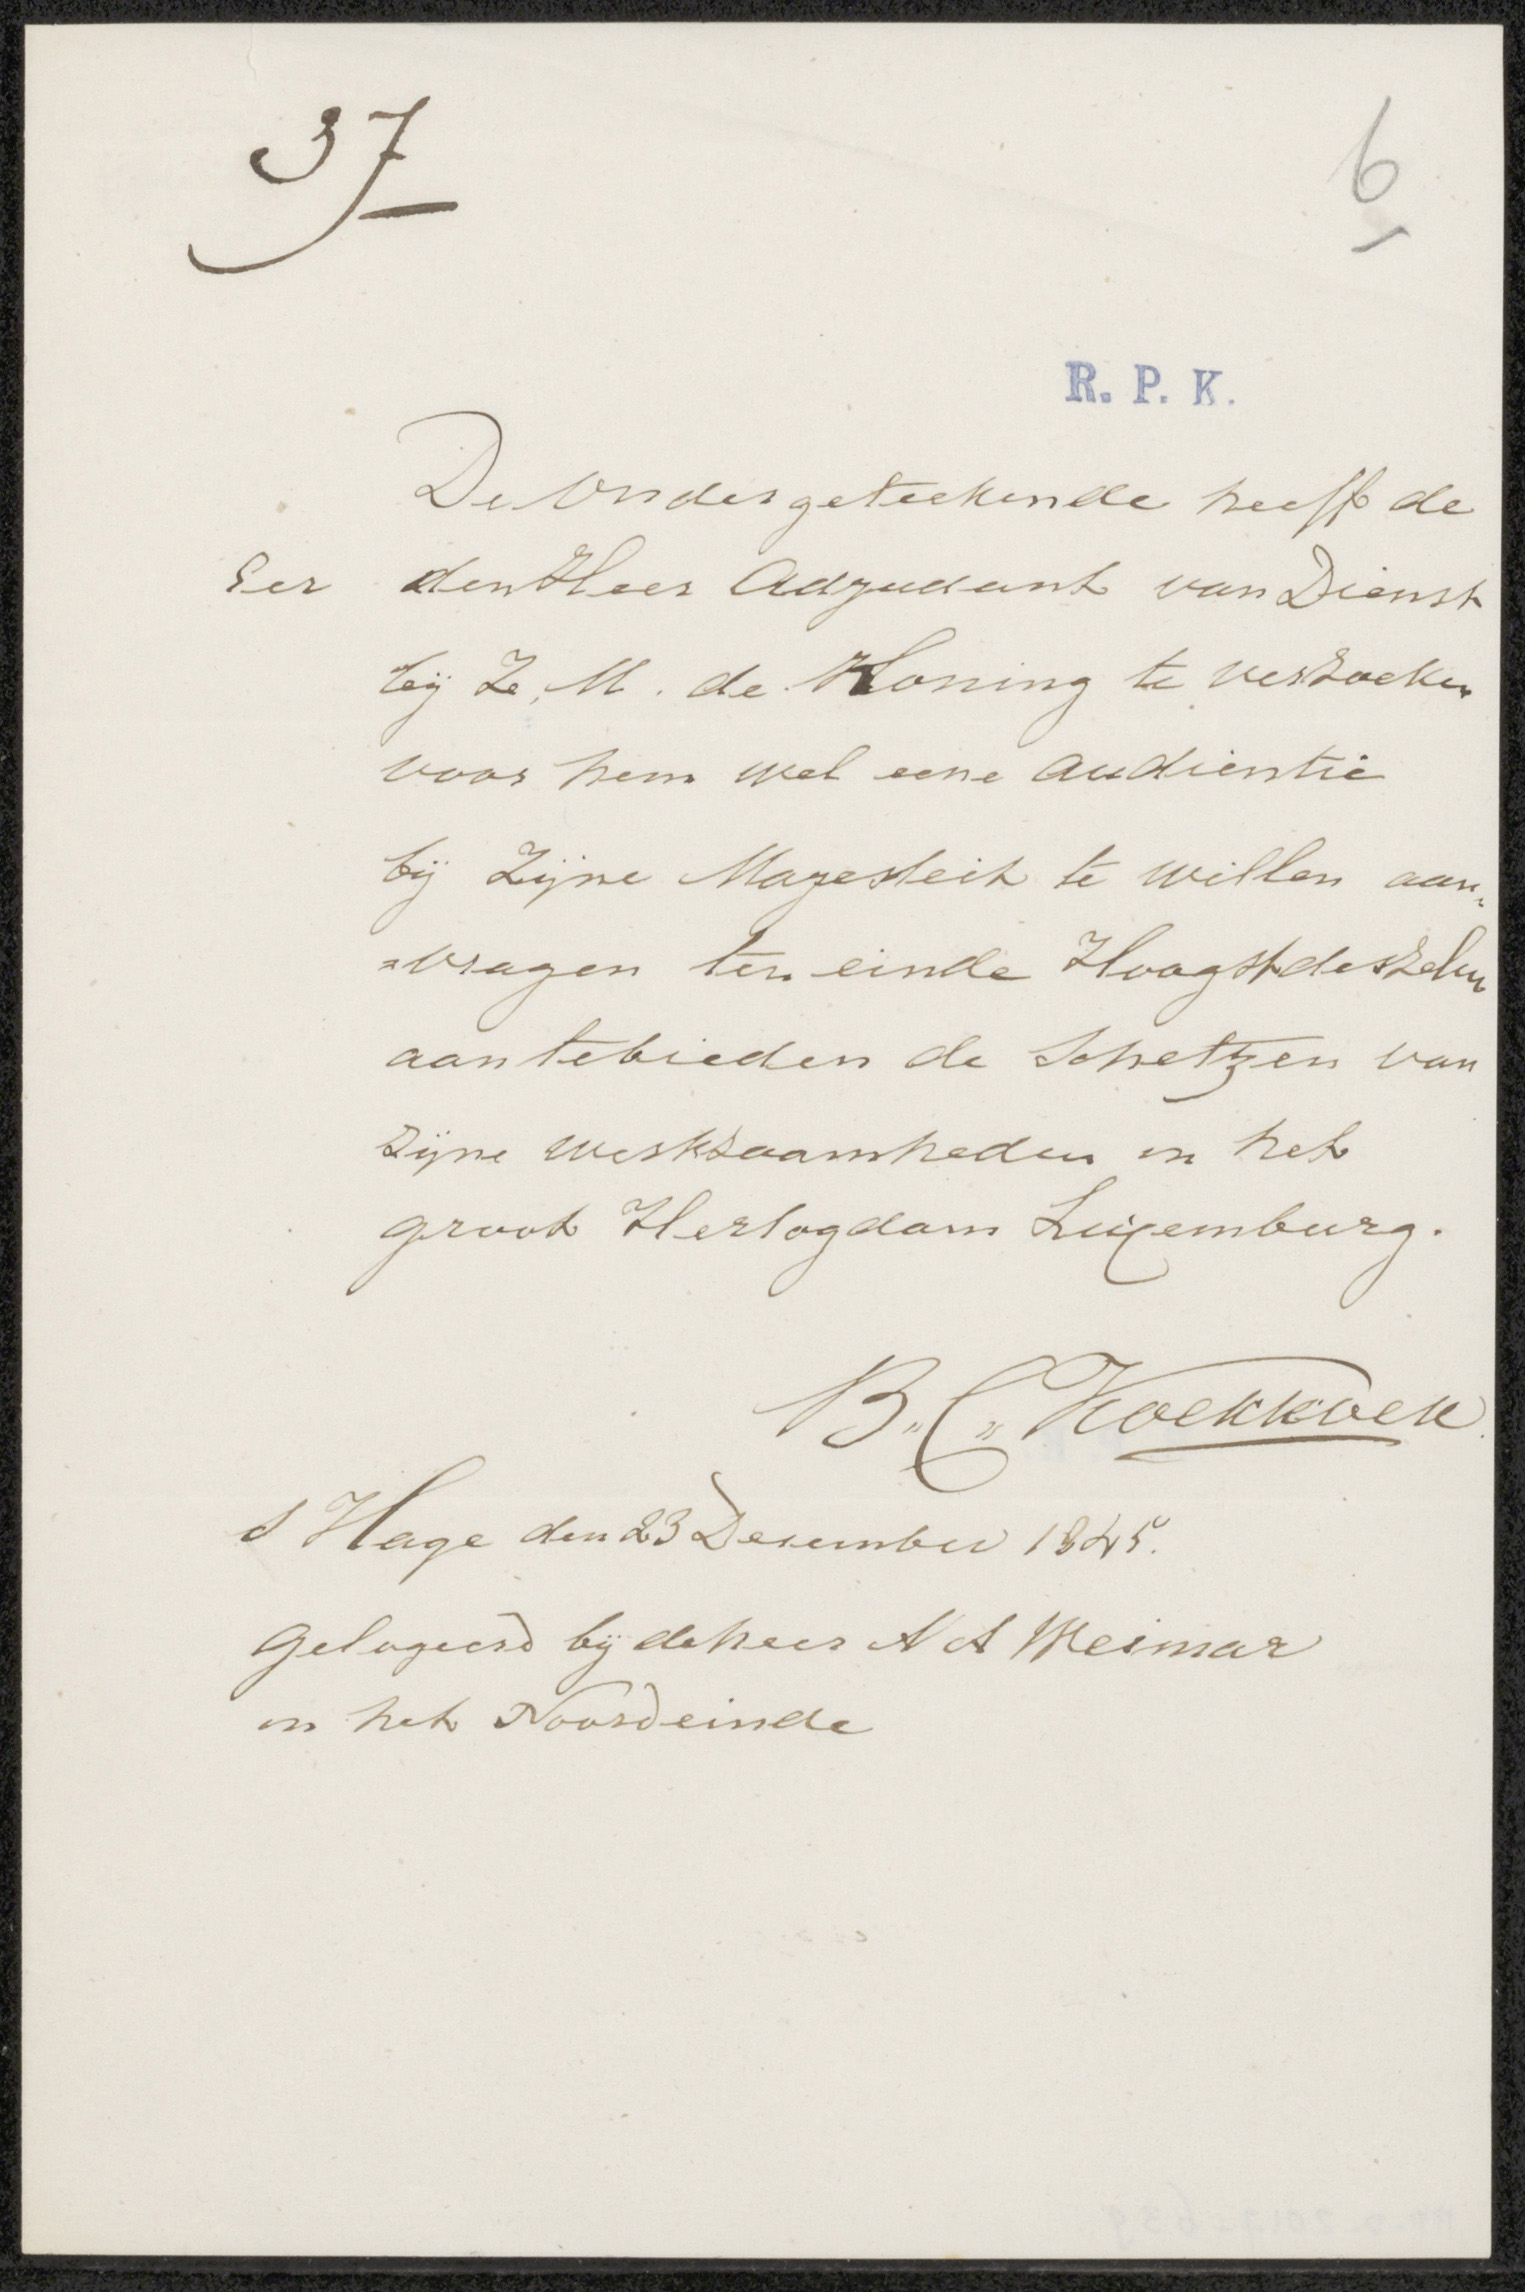 37
6
R. P. K.
De Ondergeteekende heeft de
Eer den Heer Adjudant van Dienst
bij Ze. M. de Koning te verzoeken
voor hem wel eene audientie
bij Zijne Majesteit te willen aan„
=vragen ten einde Hoogstdeszelve
aantebieden de Schetzen van
zijne werkzaamheden in het
groot Hertogdom Luxemburg.
B„ C„ Koekkoek
s Hage den 23 December 1845.
gelogeerd bij de heer A A Weimar
in het Noordeinde